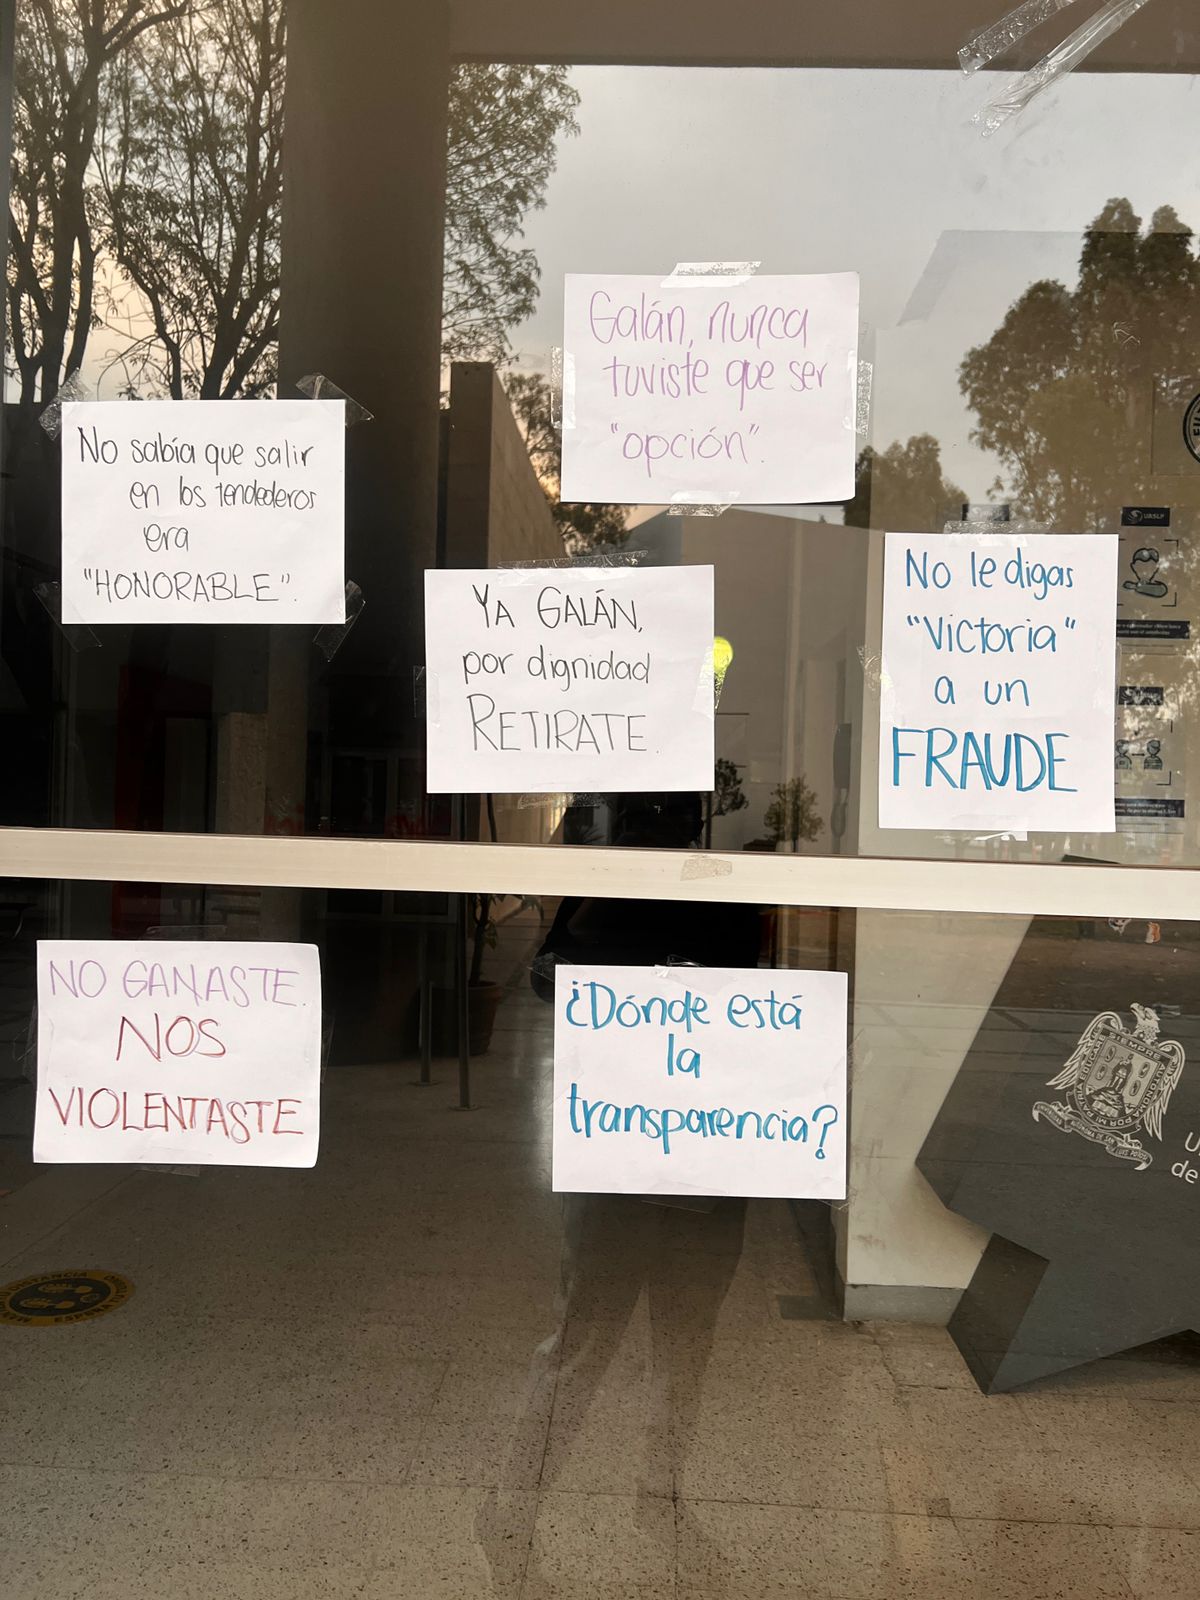 Galán, nunca
tuviste que ser
"opción".
No sabía que salir
en los tendederos
era
"HONORABLE".
YA GALÁN,
por dignidad
RETIRATE.
No le digas
"Victoria"
a un
FRAUDE
UASLP
NO GANASTE.
NOS
VIOLENTASTE
¿Dónde está
la
transparencia?
SIEMPRE AUTÓNOMA
POR MI PATRIA EDUCARÉ
de